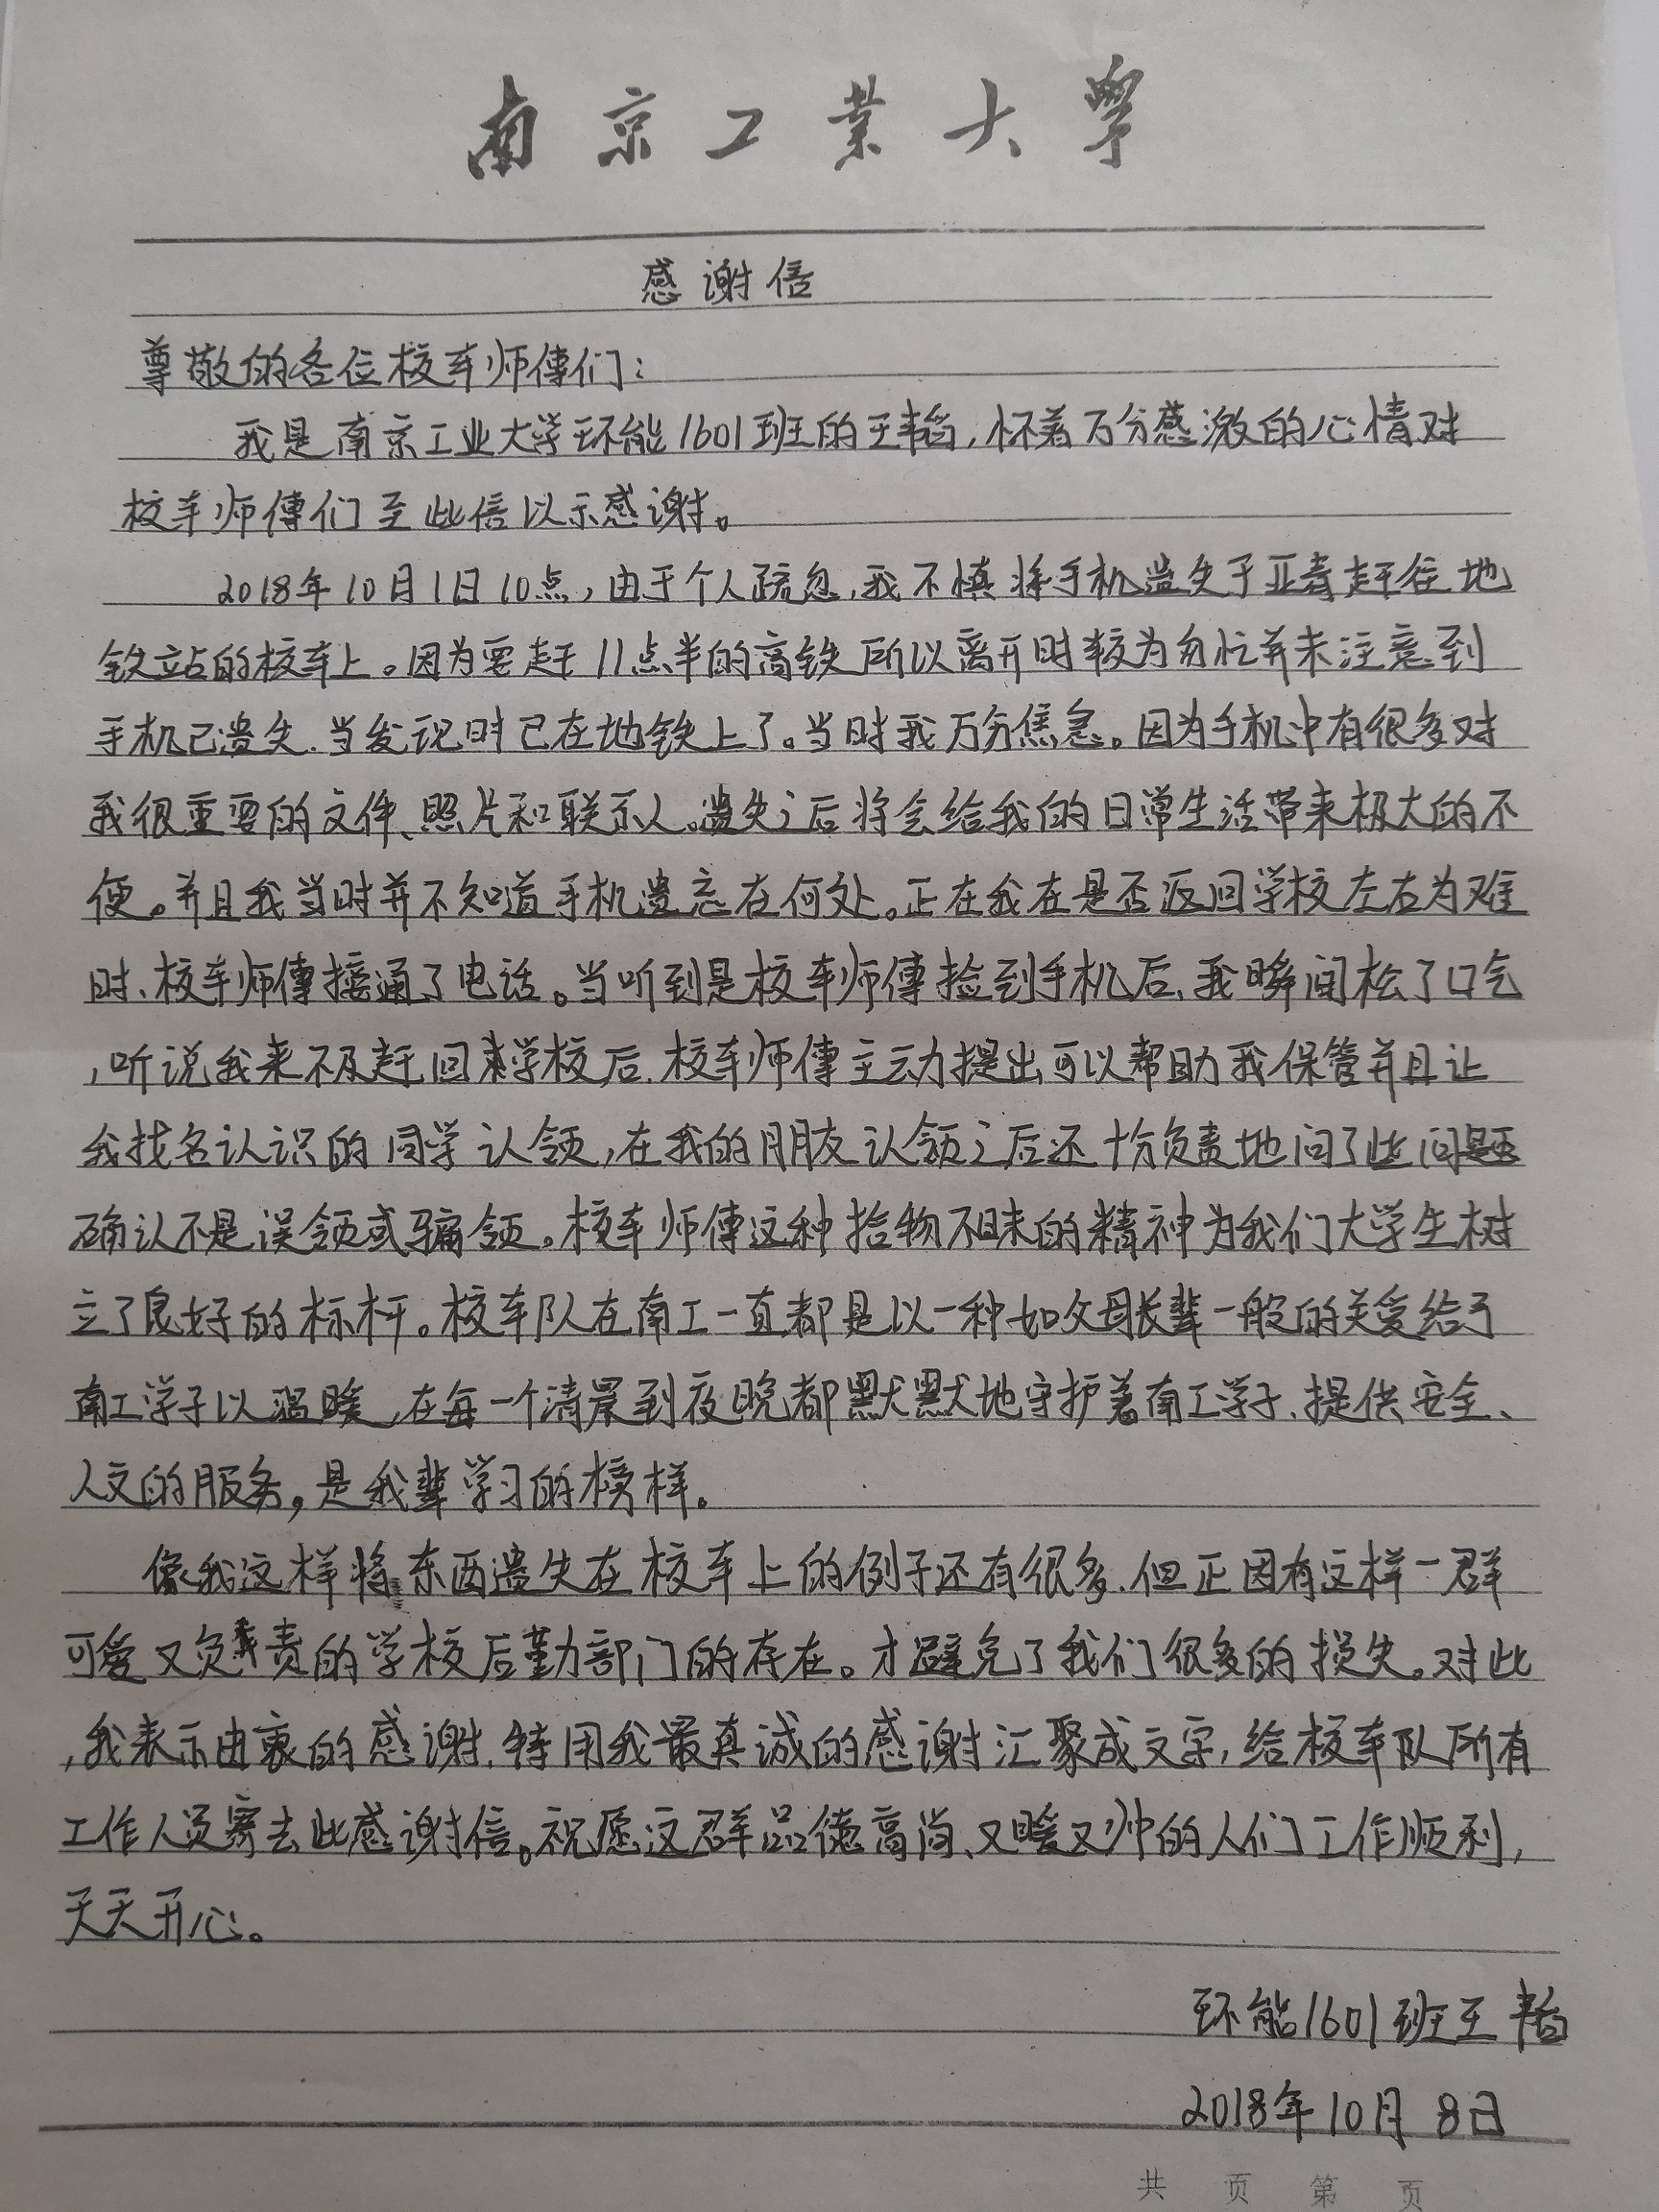 南京工业大學
感谢信
尊敬的各位校车师傅们：
我是南京工业大学环能1601班的王韬，怀着万分感激的心情对
校车师傅们至此信以示感谢。
2018年10月1日10点，由于个人疏忽，我不慎将手机遗失于亚青赶往地
铁站的校车上。因为要赶11点半的高铁所以离开时较为匆忙并未注意到
手机已遗失.当发现时已在地铁上了。当时我万分焦急。因为手机中有很多对
我很重要的文件、照片和联系人。遗失之后将会给我的日常生活带来极大的不
便。并且我当时并不知道手机遗忘在何处。正在我在是否返回学校左右为难
时、校车师傅接通了电话。当听到是校车师傅捡到手机后、我瞬间松了口气
，听说我来不及赶回来学校后.校车师傅主动提出可以帮助我保管并且让
我找名认识的同学认领，在我的朋友认领之后还十分负责地问了些问题
确认不是误领或骗领。校车师傅这种拾物不昧的精神为我们大学生树
立了良好的标杆。校车队在南工一直都是以一种如父母长辈一般的关爱给予
南工学子以温暖，在每一个清晨到夜晚都默默地守护着南工学子、提供安全、
人文的服务，是我辈学习的榜样。
像我这样将东西遗失在校车上的例子还有很多.但正因有这样一群
可爱又负责的学校后勤部门的存在。才避免了我们很多的损失。对此
，我表示由衷的感谢.特用我最真诚的感谢汇聚成文字，给校车队所有
工作人员寄去此感谢信。祝愿这群品德高尚、又暖又帅的人们工作顺利，
天天开心。
环能1601班王韬
2018年10月8日
共 页 第 页